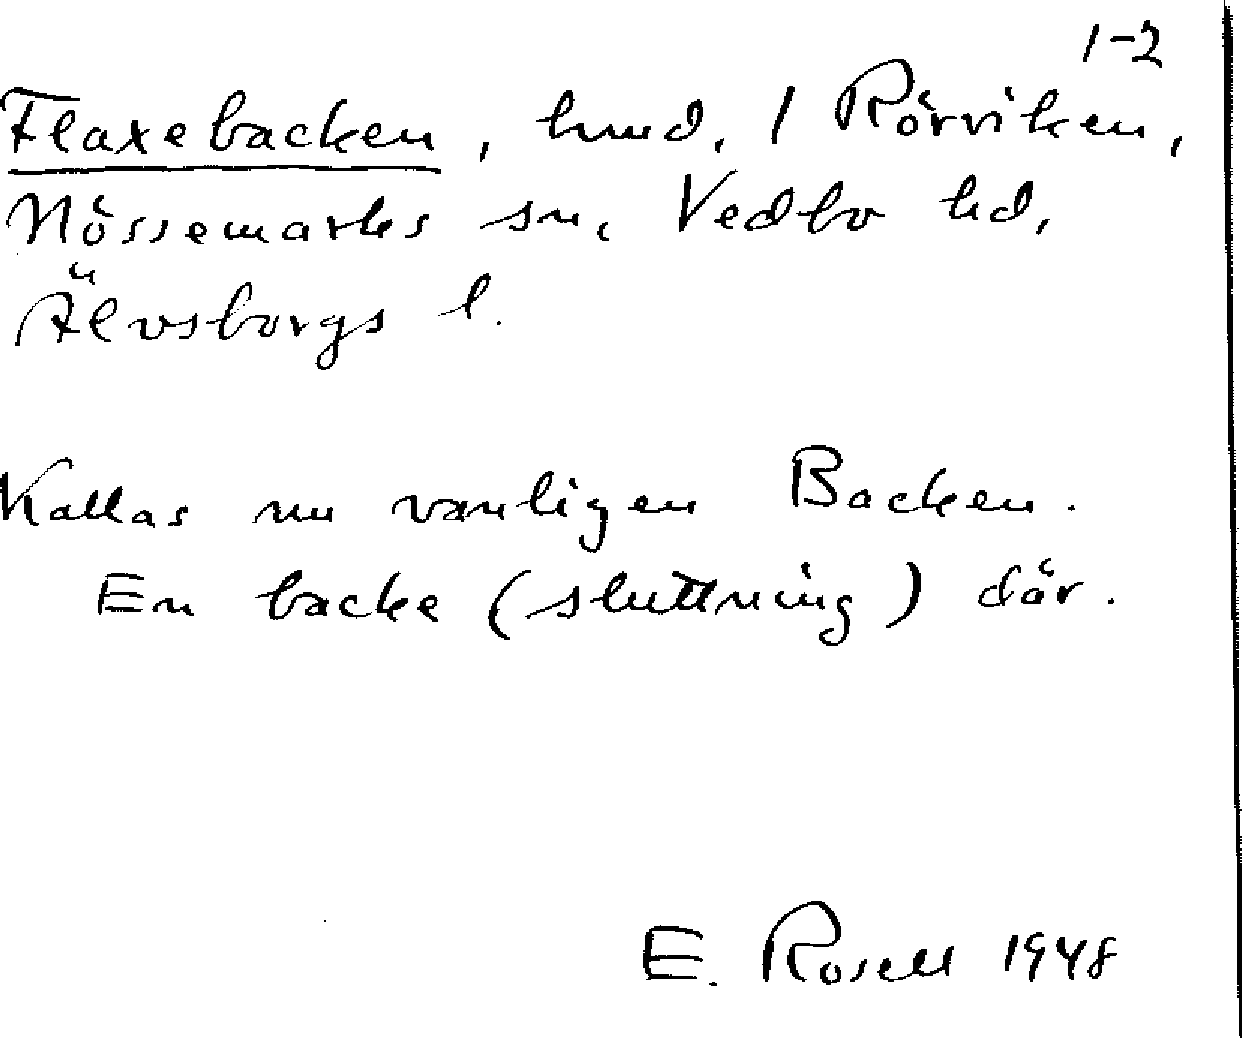 1-2
Flaxebacken, hmd. / Rörviken,
Nössemarks sn, Vedbo hd,
Älvsborgs l.
Kallas nu vanligen Backen.
En backe (sluttning) där.
E. Rosell 1948